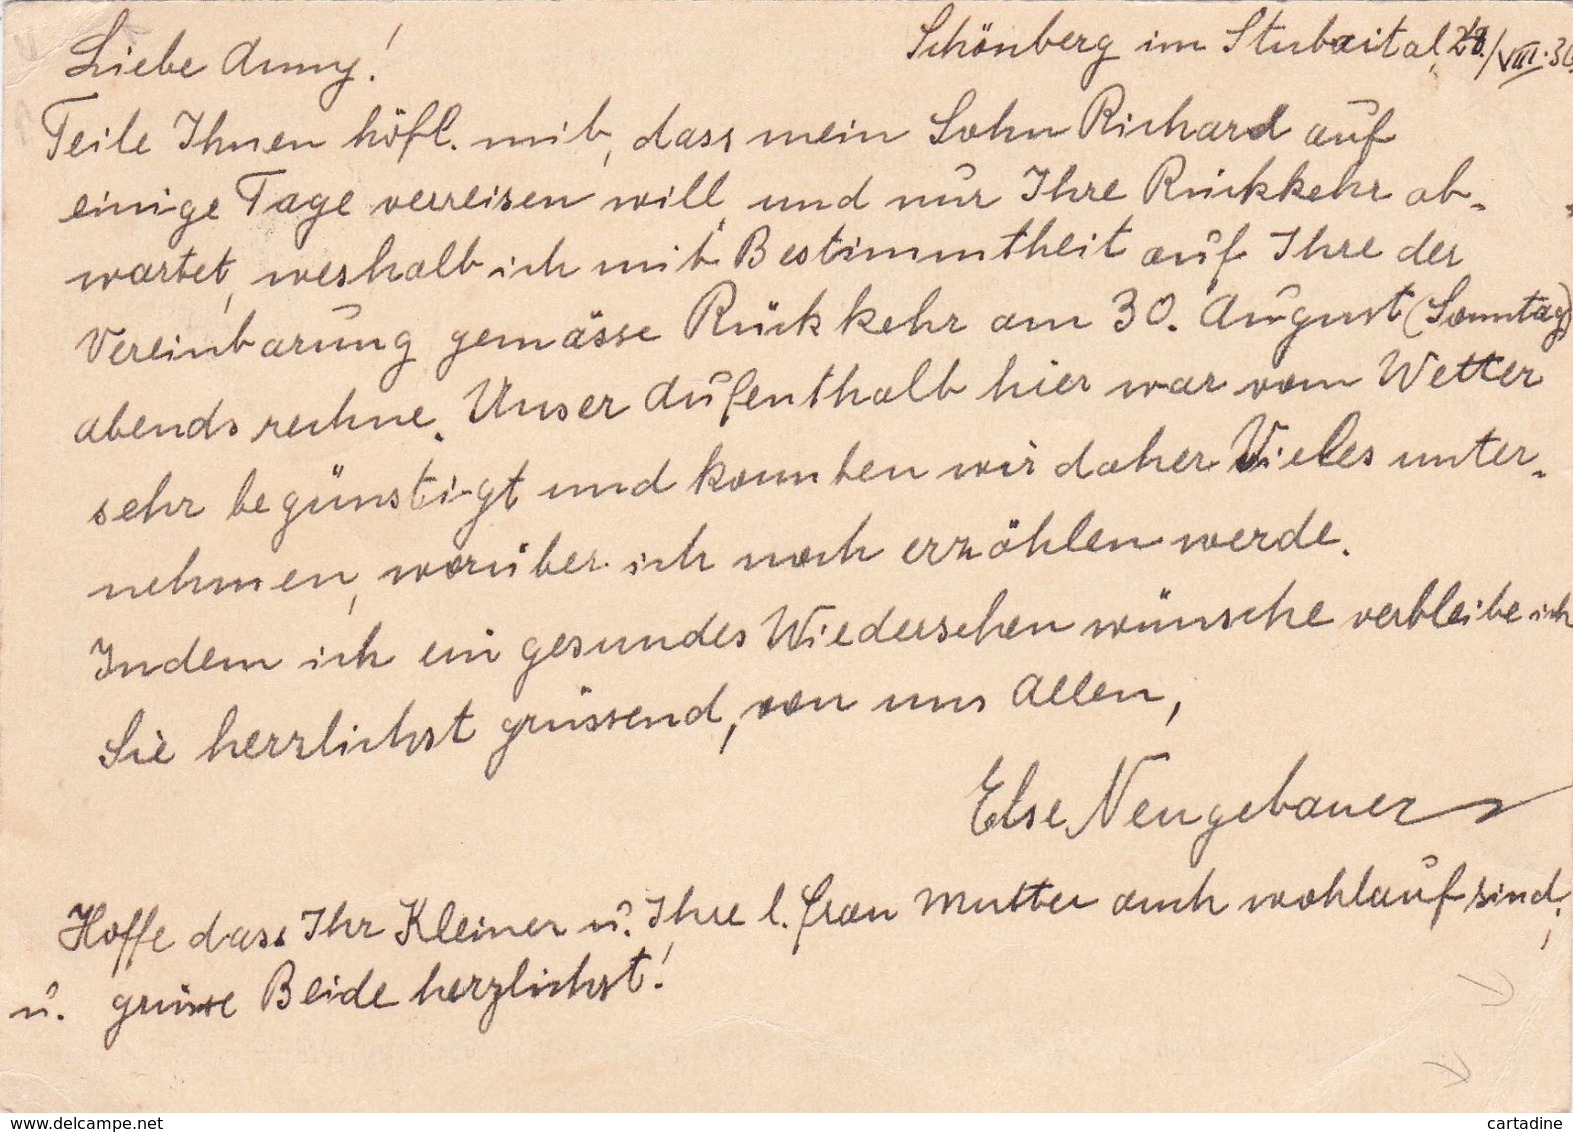 Schönberg im Stubaital, 28./VIII. 36.
Liebe Anny!
Teile Ihnen höfl. mit, dass mein Sohn Richard auf
einige Tage verreisen will, und nur Ihre Rückkehr ab-
wartet, weshalb ich mit Bestimmtheit auf Ihre der
Vereinbarung gemässe Rückkehr am 30. August (Sonntag)
abends rechne. Unser Aufenthalt hier war vom Wetter
sehr begünstigt und konnten wir daher Vieles unter-
nehmen, worüber ich noch erzählen werde.
Indem ich ein gesundes Wiedersehen wünsche verbleibe ich
Sie herzlichst grüssend, von uns Allen,
Else Neugebauer
Hoffe dass Ihr Kleiner u. Ihre l. Frau Mutter auch wohlauf sind,
u. grüsse Beide herzlichst!
www.delcampe.net
cartadine